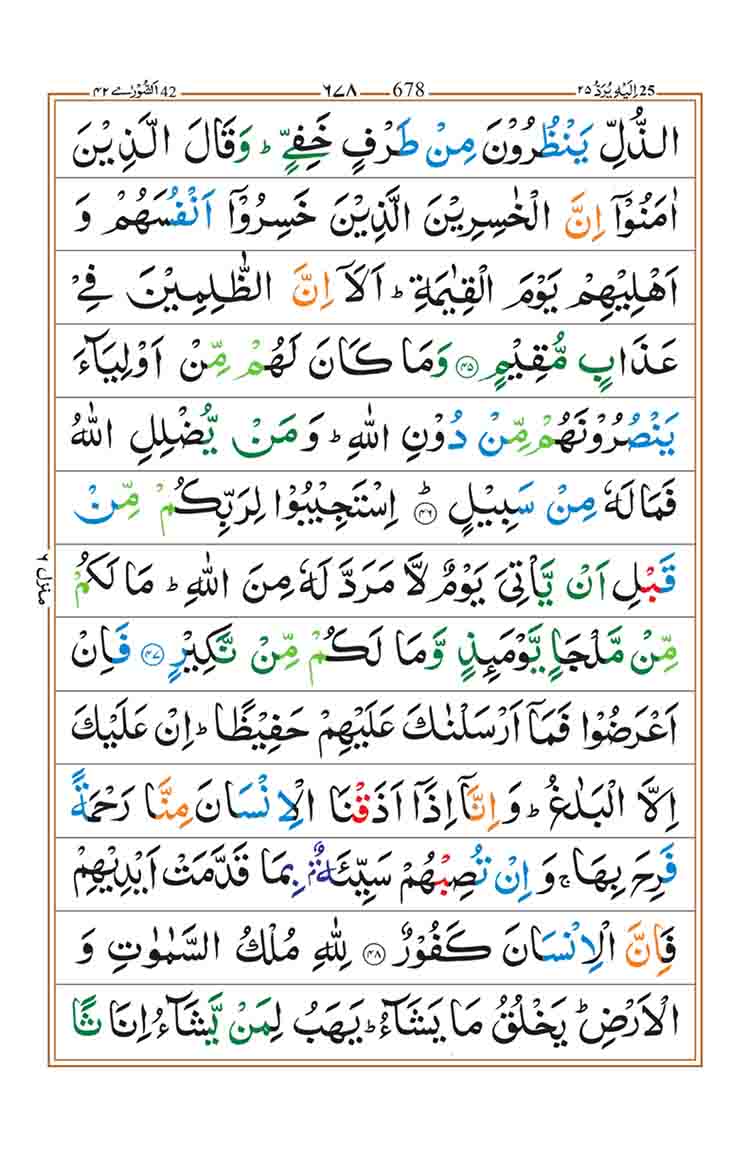 اَلشُّوْرٰے ٤٢ 42 ٦٧٨ 678 اِلَيْهِ يُرَدُّ ٢٥ 25
الذُّلِّ يَنْظُرُوْنَ مِنْ طَرْفٍ خَفِيٍّ ؕ وَقَالَ الَّذِيْنَ
اٰمَنُوْۤا اِنَّ الْخٰسِرِيْنَ الَّذِيْنَ خَسِرُوْۤا اَنْفُسَهُمْ وَ
اَهْلِيْهِمْ يَوْمَ الْقِيٰمَةِ ؕ اَلَاۤ اِنَّ الظّٰلِمِيْنَ فِيْ
عَذَابٍ مُّقِيْمٍ ۝٤٥ وَمَا كَانَ لَهُمْ مِّنْ اَوْلِيَآءَ
يَنْصُرُوْنَهُمْ مِّنْ دُوْنِ اللّٰهِ ؕ وَمَنْ يُّضْلِلِ اللّٰهُ
فَمَا لَهٗ مِنْ سَبِيْلٍ ؕ۝٤٦ اِسْتَجِيْبُوْا لِرَبِّكُمْ مِّنْ
قَبْلِ اَنْ يَّاْتِيَ يَوْمٌ لَّا مَرَدَّ لَهٗ مِنَ اللّٰهِ ؕ مَا لَكُمْ
مِّنْ مَّلْجَاٍ يَّوْمَئِذٍ وَّمَا لَكُمْ مِّنْ نَّكِيْرٍ ۝٤٧ فَاِنْ
اَعْرَضُوْا فَمَاۤ اَرْسَلْنٰكَ عَلَيْهِمْ حَفِيْظًا ؕ اِنْ عَلَيْكَ
اِلَّا الْبَلٰغُ ؕ وَاِنَّاۤ اِذَاۤ اَذَقْنَا الْاِنْسَانَ مِنَّا رَحْمَةً
فَرِحَ بِهَا ۚ وَاِنْ تُصِبْهُمْ سَيِّئَةٌۢ بِمَا قَدَّمَتْ اَيْدِيْهِمْ
فَاِنَّ الْاِنْسَانَ كَفُوْرٌ ۝٤٨ لِلّٰهِ مُلْكُ السَّمٰوٰتِ وَ
الْاَرْضِ ؕ يَخْلُقُ مَا يَشَآءُ ؕ يَهَبُ لِمَنْ يَّشَآءُ اِنَاثًا
منزل ٦